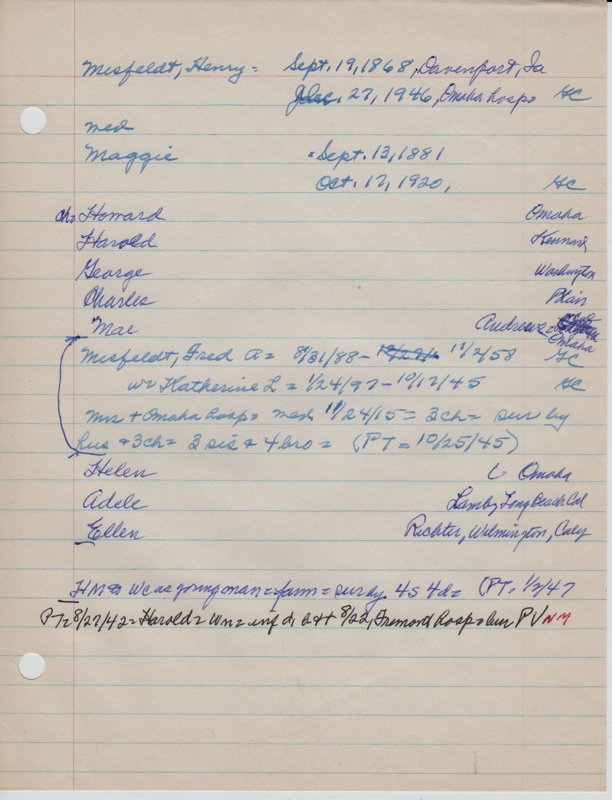 Misfeldt, Henry = Sept. 19, 1868, Davenport, Ia
Dec. 27, 1946, Omaha hosp = GC
med
Maggie = Sept. 13, 1881
Oct. 17, 1920, GC
ch = Howard Omaha
Harold Kennard
George Washington
Charles Blair
Mae Andrews Omaha
Misfeldt, Fred A = 8/31/88 - 11/2/58 GC
w = Katherine L = 1/24/97 - 10/17/45 GC
Mrs + Omaha hosp = med 11/24/15 = 3 ch = sur by
hus + 3 ch = 3 sis + 4 bro = (PT = 10/25/45)
Helen Omaha
Adele Lamby Long Beach Cal
Ellen Richter, Wilmington, Calif
HM = WC as young man = farm = sur by 4s 4d = (PT, 1/2/47
PT = 8/27/42 = Harold = Wn = inf d, b + + 8/22, Fremont hosp = bur PV NM